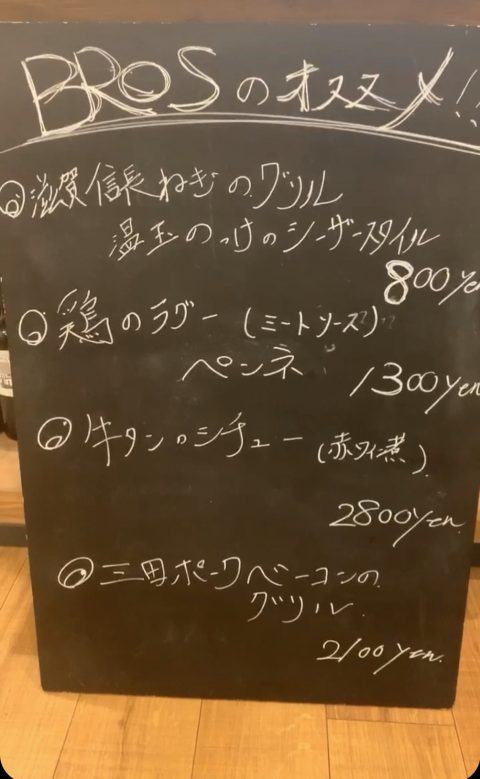 BROSのオススメ!!
◎滋賀信長ねぎのグリル
温玉のっけのシーザースタイル
800yen
◎鶏のラグー (ミートソース)
ペンネ 1300yen
◎牛タンのシチュー (赤ワイン煮)
2800yen
◎三田ポークベーコンの
グリル
2100yen